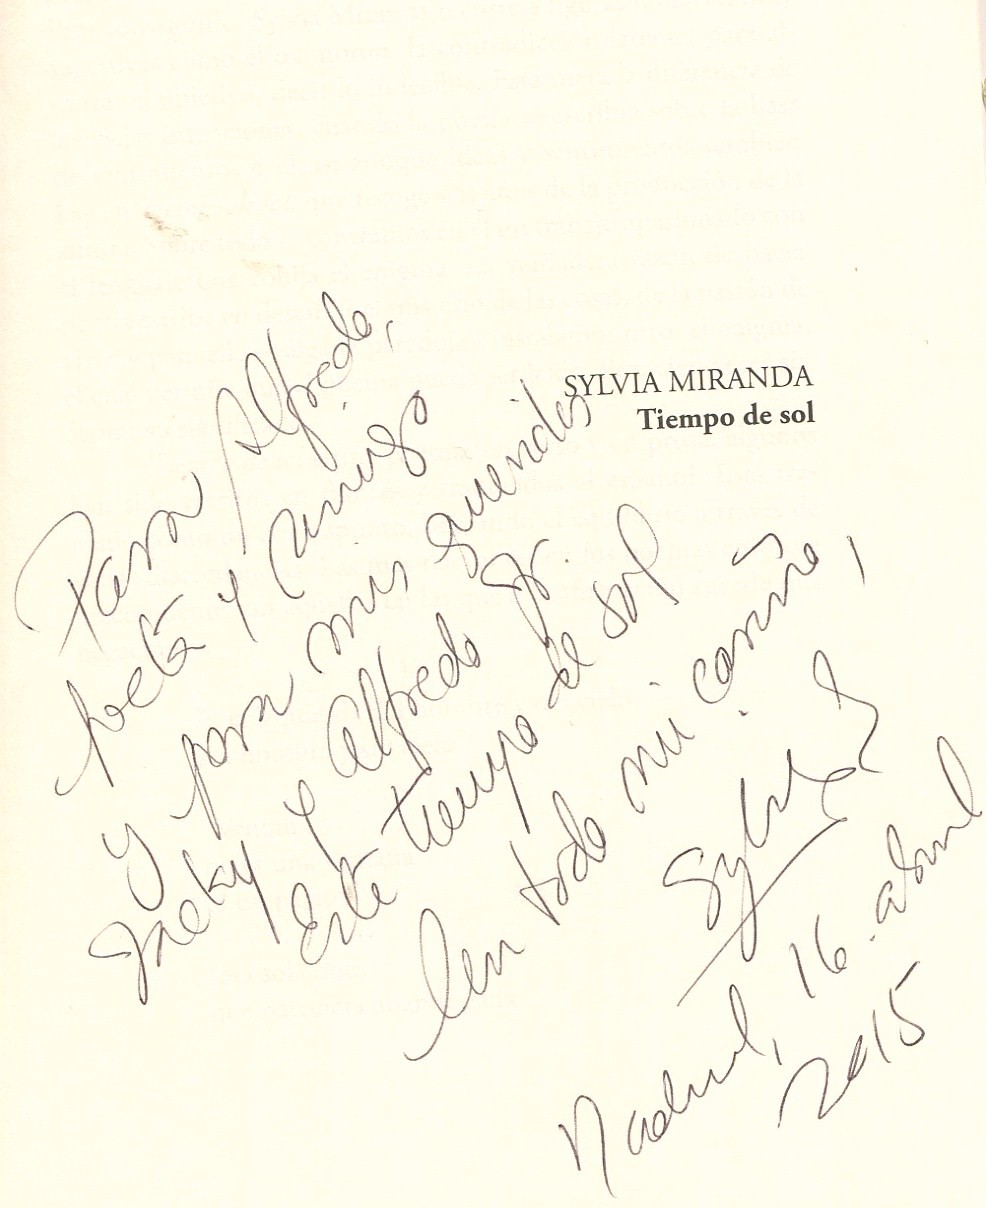 SYLVIA MIRANDA
Tiempo de sol
Para Alfredo,
poeta y amigo
y para mis queridos
Jacky y Alfredo Jr.
Este tiempo de sol
Con todo mi cariño,
Sylvia
Madrid, 16 abril
2015